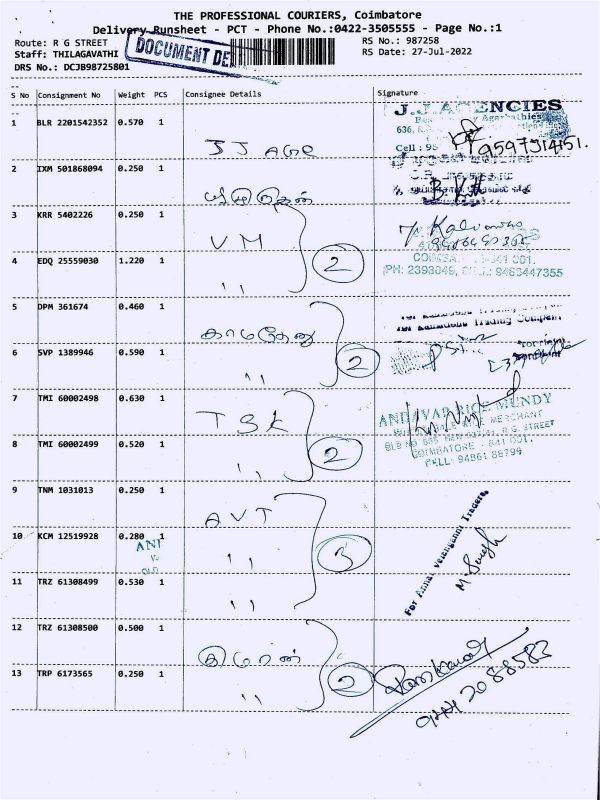 THE PROFESSIONAL COURIERS, Coimbatore
Delivery Runsheet - PCT - Phone No.:0422-3505555 - Page No.:1
Route: R G STREET
RS No.: 987258
Staff: THILAGAVATHI
DOCUMENT DE
RS Date: 27-Jul-2022
DRS No.: DCJB98725801
S No Consignment No Weight PCS Consignee Details Signature
1 BLR 2201542352 0.570 1
J.J.AGENCIES
636,
Cell : 95
9597314151.
JJ AGE
2 IXM 501868094 0.250 1
3 KRR 5402226 0.250 1
VM
2
4 EDQ 25559030 1.220 1
COIMBA 641 001.
PH: 2393049, 9463447355
,,
5 DPM 361674 0.460 1
காமதேனு
for Kamadhenu Trading Company
6 SVP 1389946 0.590 1
,,
2
7 TMI 60002498 0.630 1
TSK
ANDAVAR RICE MUNDY
RICE MERCHANT
R.G. STREET
COIMBATORE - 641 001.
CELL: 94861 88799
8 TMI 60002499 0.520 1
,,
2
9 TNM 1031013 0.250 1
AVT
For Annai Velanganni Traders,
M. Singh
10 KCM 12519928 0.280 1
ANI
,,
3
11 TRZ 61308499 0.530 1
,,
12 TRZ 61308500 0.500 1
13 TRP 6173565 0.250 1
,,
2
9442088583